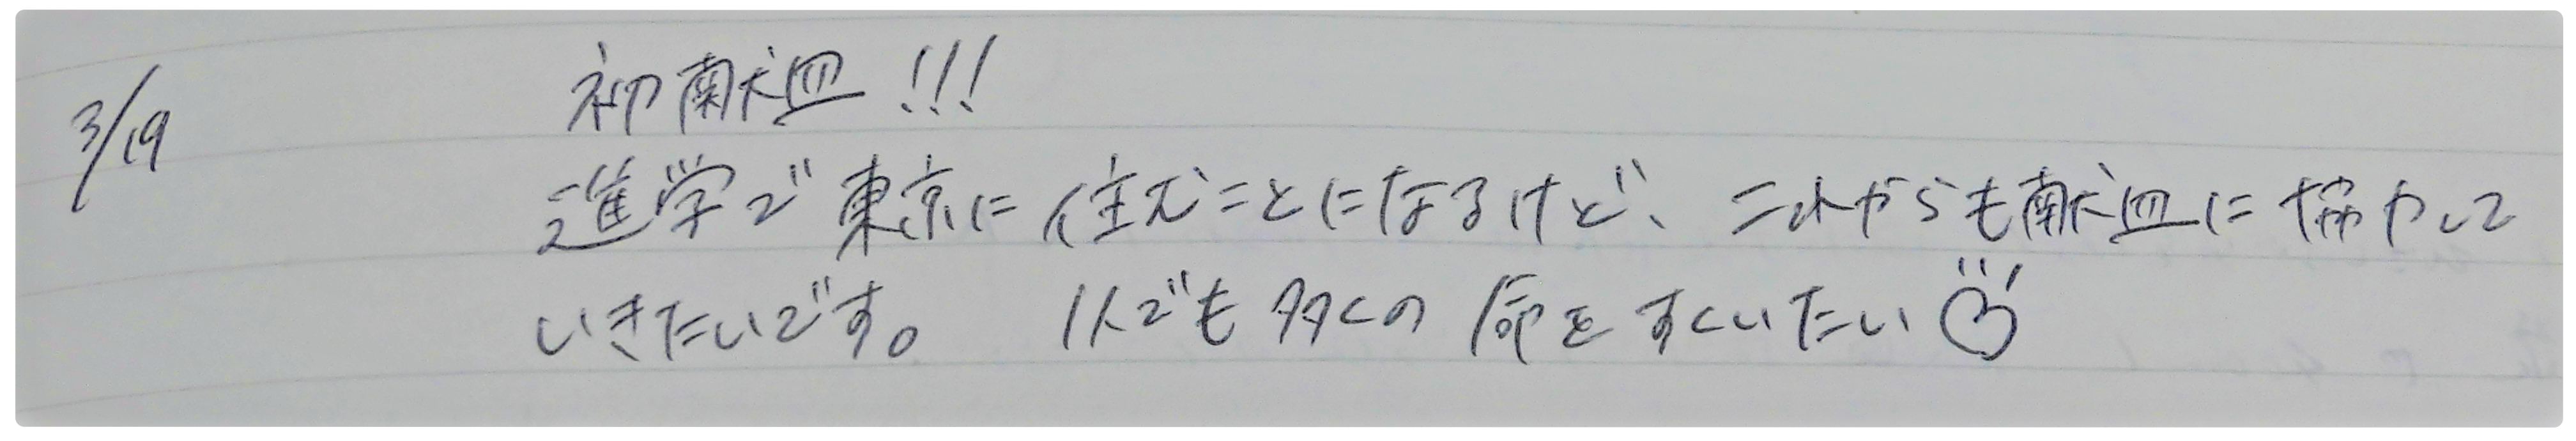 3/19
初献血!!!
進学で東京に住むことになるけど、これからも献血に協力して
いきたいです。 1人でも多くの命をすくいたい